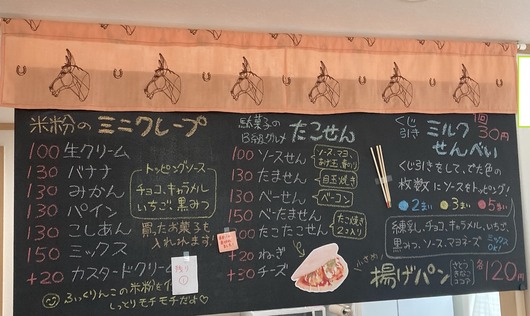 米粉の ミニクレープ
100 生クリーム
130 バナナ
130 みかん
130 パイン
130 こしあん
150 ミックス
+20 カスタードクリーム
トッピングソース
チョコ、キャラメル
いちご、黒みつ
買ったお菓子も
入れれます!
ふっくりんこの米粉を
しっとりモチモチだよ♡
残り
駄菓子の
B級グルメ たこせん
100 ソースせん
130 たません
130 べーせん
150 べーたません
100 たこたこせん
+20 ねぎ
+30 チーズ
ソース、マヨ、
あげ玉、青のり
目玉焼き
ベーコン
たこ焼き
2コ入り
くじ
引き ミルク
せんべい
1回
30円
くじ引きをして、でた色の
枚数にソースをトッピング!
2まい 3まい 5まい
練乳、チョコ、キャラメル、いちご、
黒みつ、ソース、マヨネーズ
ミックス
OK!
揚げパン
さとう
きなこ
ココア
各120円